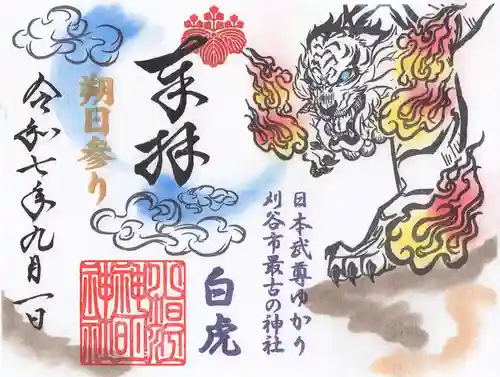 日本武尊ゆかり
刈谷市最古の神社
白虎
奉拝
朔日参り
小垣江
神明
神社
令和七年九月一日